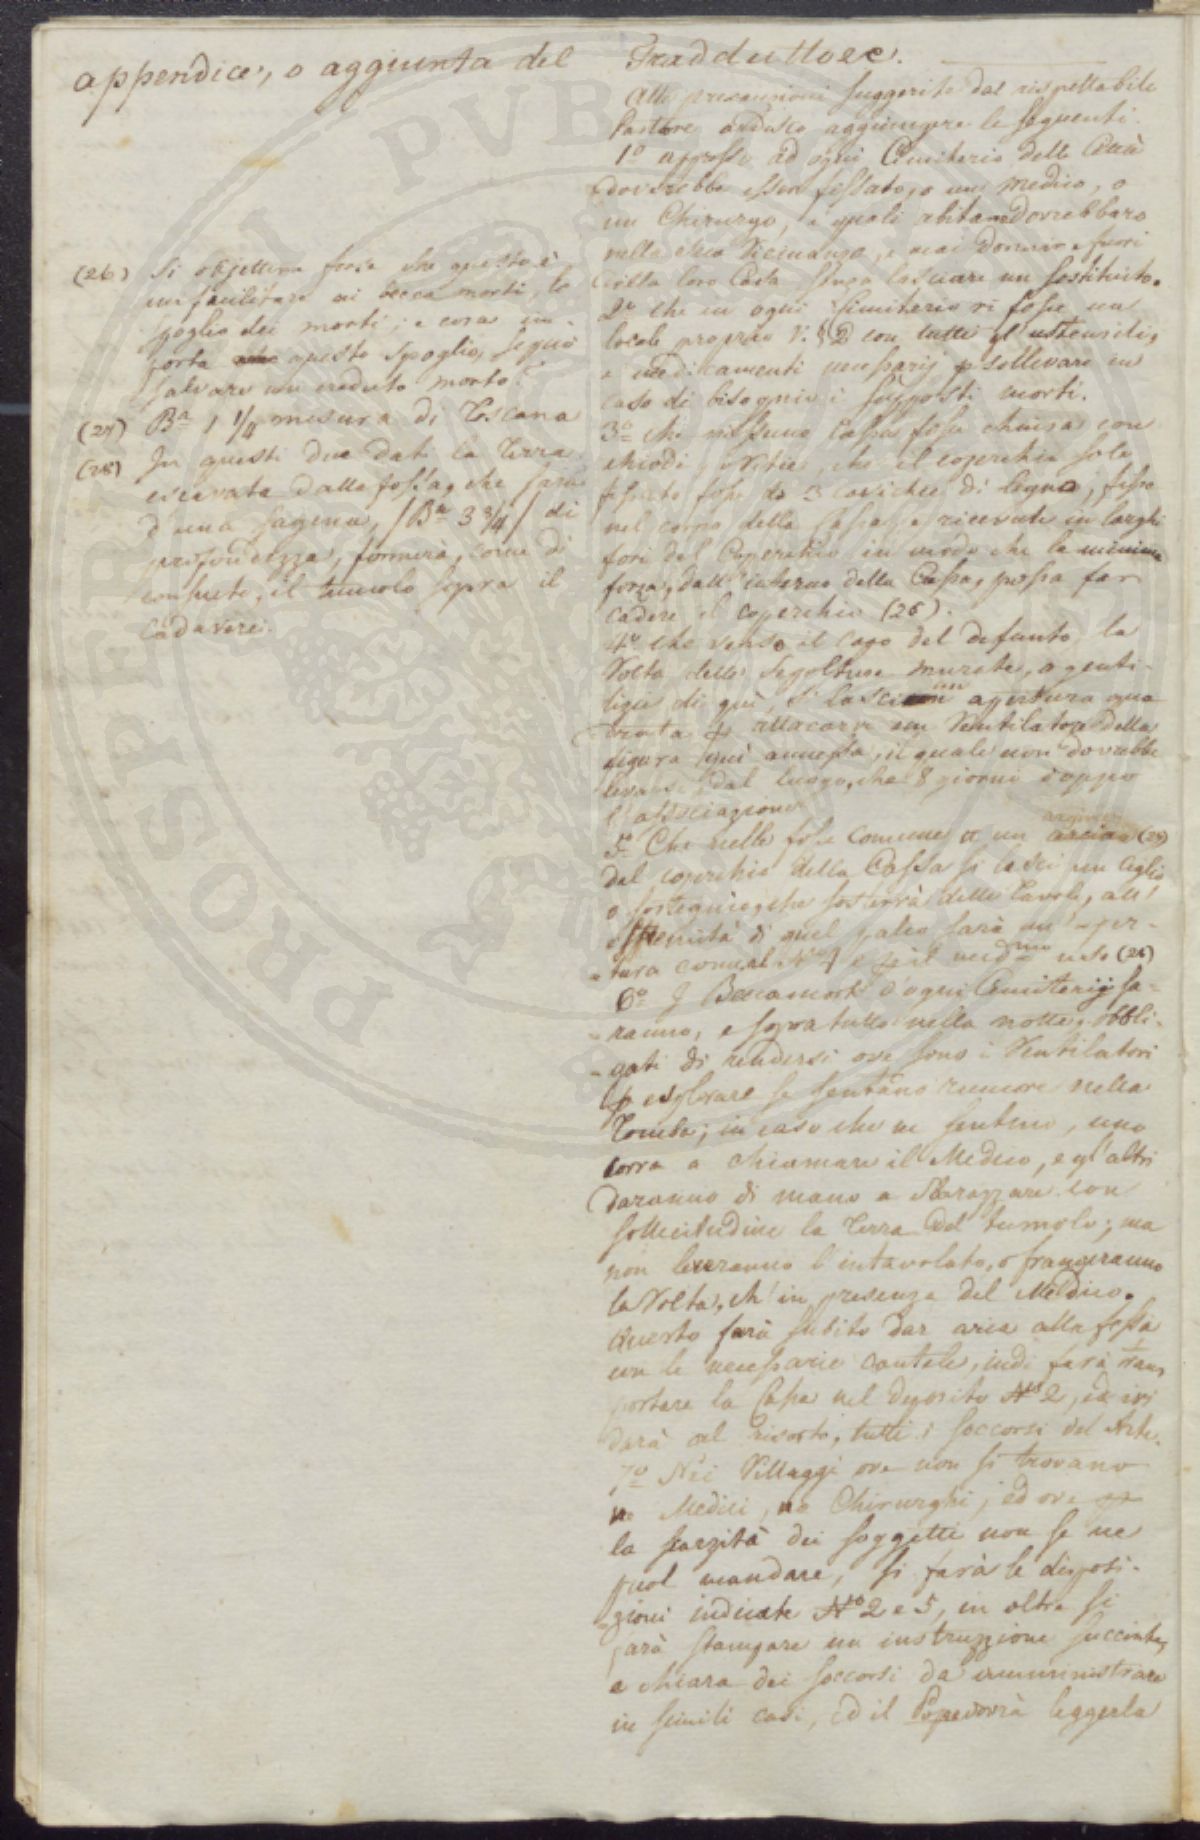 appendice, o aggiunta del Tradduttore.
Alle precauzioni suggerite dal rispettabile
Pastore ardisco aggiungere le seguenti.
1º appresso ad ogni Cimiterio delle Città
dovrebbe esser fissato, o un medico, o
un Chirurgo, i quali abitar dovrebbero
nella sua Vicinanza, e mai dormir fuori
della loro Casa senza lasciare un sostituto.
2º che in ogni Cimiterio vi fosse un
locale proprio V. § 2 con tutti gl'ustensili,
e medicamenti necessarij p sollevare in
caso di bisogno i supposti morti.
3º che nissuna Cassa fosse chiusa con
chiodi, o Vitie che il coperchio solo
tenuto fosse da 3 cavichie di legno, fisse
nel corpo della Cassa, e ricevute in larghi
fori del Coperchio in modo che la minima
forza, dall'interno della Cassa, possa far
cadere il coperchio (26).
4º che verso il capo del defunto la
Volta delle Sepolture murate, o genti-
lizie di qui, si lasci un apertura qua-
-drata p attaccarvi un Ventilatore della
figura qui annessa, il quale non dovrebbe
levarsi dal luogo, che 8 giorni doppo
l'associazione
5º Che nelle fosse comune a un arcino (27)
dal coperchio della Cassa si lasci un ciglio
o sostegno, che sosterrà delle tavole, all'
estremità di quel palco sarà un'aper-
-tura come al Nº 4 e p il medmo uso (28)
6º I Beccamorti d'ogni Cimiterij sa-
-ranno, e sopra tutto nella notte, obbli-
-gati di rendersi ove sono i Ventilatori
p esplorare se sentano rumore nella
Tomba; in caso che ne sentino, uno
corra a chiamare il Medico, e gl'altri
daranno di mano a sbarazzare con
sollecitudine la Terra del tumolo; ma
non leveranno l'intavolato, o frangeranno
la Volta, ch'in presenza del Medico.
Questo farà subito dar aria alla fossa
con le necessarie cautele, indi farà tras-
portare la Cassa nel deposito Nº 2, ed ivi
darà al risorto, tutti i soccorsi del Arte.
7º Nei Villaggi ove non si trovano
ne Medici, ne Chirurghi, ed ove p
la scarzità dei soggetti non se ne
puol mandare, si farà le disposi-
-zioni indicate Nº 2 e 5, in oltre si
farà stampare un instruzzione succinta,
e chiara dei soccorsi da amministrare
in simili casi, ed il Pope dovrà leggerla
(26) Si objettera forse che questo è
un facilitare ai becca morti, lo
spoglio dei morti; e cosa im-
porta questo spoglio, se può
salvare un creduto morto?
(27) Ba 1 1/4 mesura di Toscana
(28) In questi due dati la Terra
escavata dalla fossa, che sarà
d'una sagena, /Ba 3 3/4/ di
profondezza, formerà, come di
consueto, il tumolo sopra il
cadavere.
PROSPERI PUB